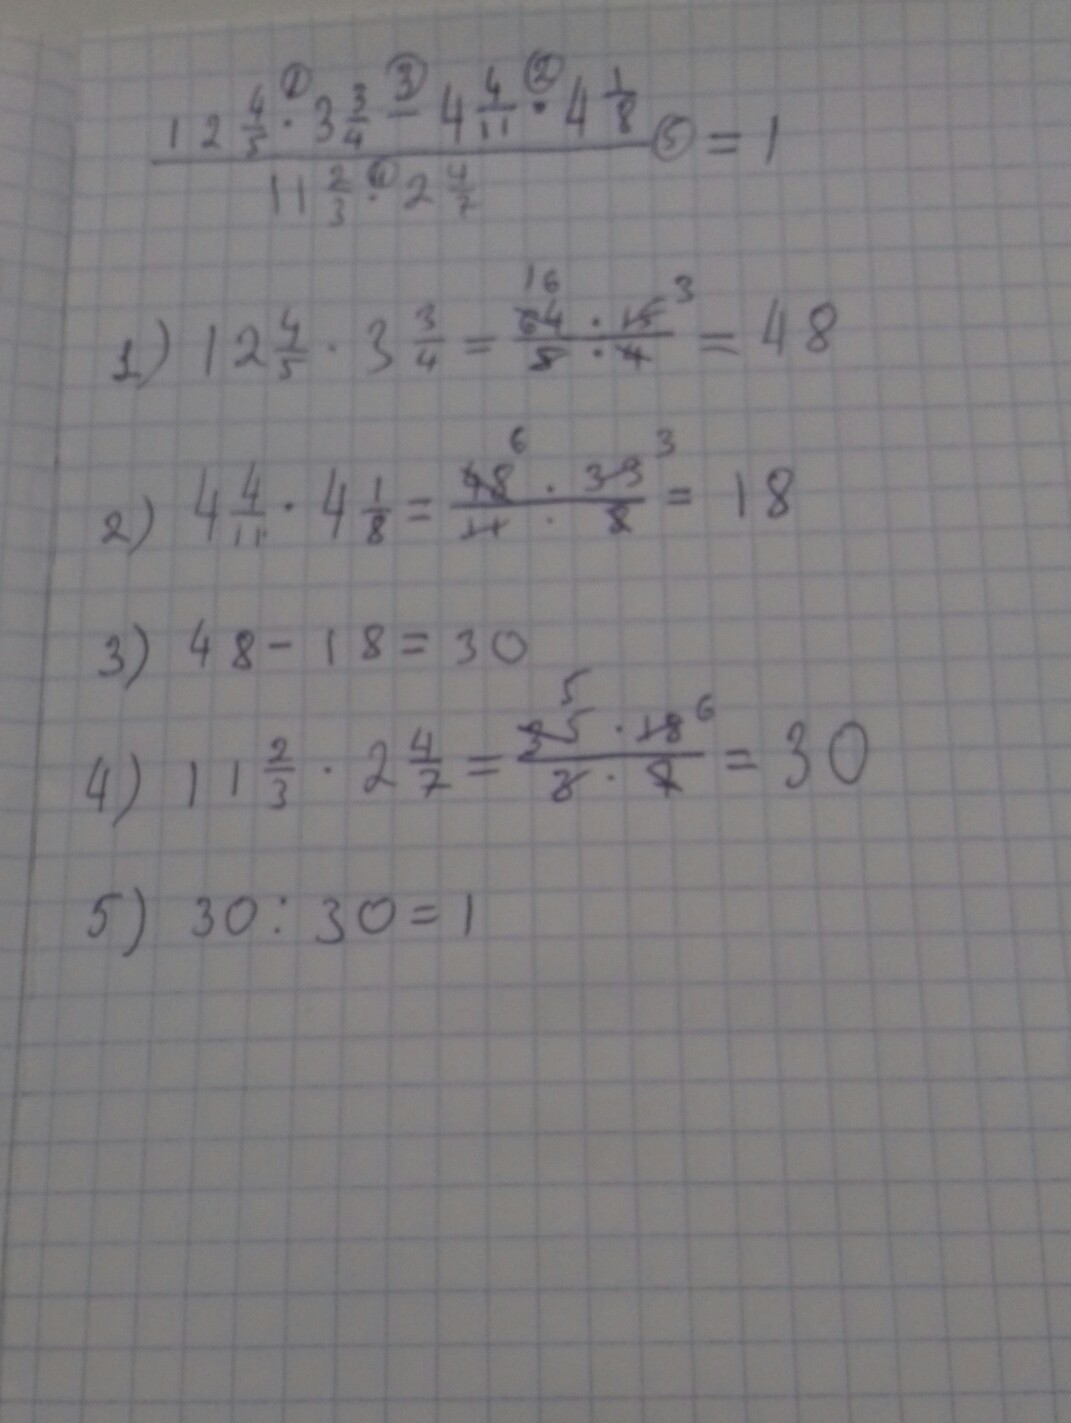 12 4/5 ① · 3 3/4 ③ − 4 4/11 ② · 4 1/8
11 2/3 ④ · 2 4/7 ⑤ = 1
1) 12 4/5 · 3 3/4 = 16 64 · 15 3 / 5 · 4 = 48
2) 4 4/11 · 4 1/8 = 48 6 · 33 3 / 11 · 8 = 18
3) 48 − 18 = 30
4) 11 2/3 · 2 4/7 = 35 5 · 18 6 / 3 · 7 = 30
5) 30 : 30 = 1